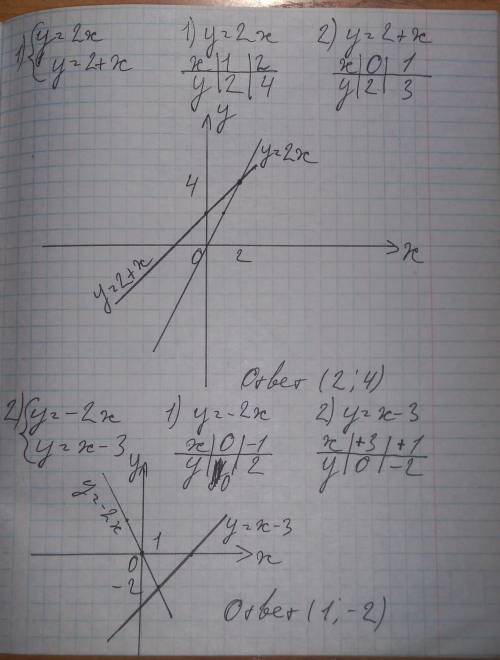 1) { y=2x 1) y=2x 2) y=2+x
y=2+x x | 1 | 2 x | 0 | 1
y | 2 | 4 y | 2 | 3
y
y=2x
4
0 2 x
y=2+x
Ответ (2; 4)
2) { y=-2x 1) y=-2x 2) y=x-3
y=x-3 x | 0 | -1 x | +3 | +1
y | 0 | 2 y | 0 | -2
y
y=-2x
1 y=x-3
0 x
-2
Ответ (1; -2)